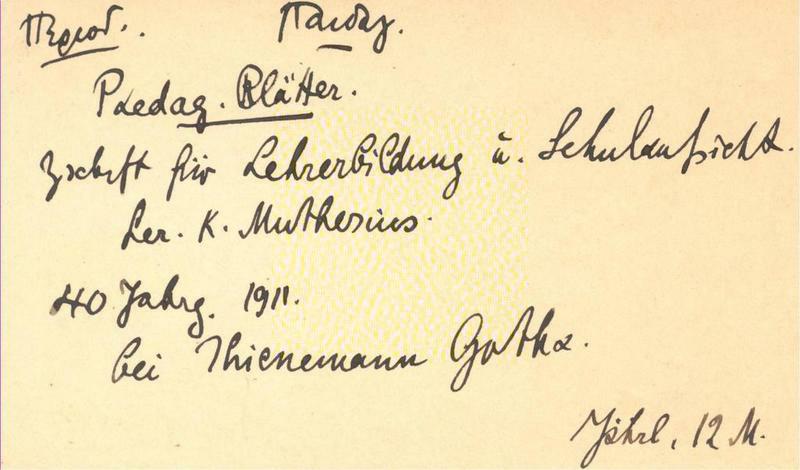 Период. Педаг.
Paedag. Blätter.
Zschrft für Lehrerbildung u. Schulaufsicht.
her. K. Muthesius.
40 Jahrg. 1911.
bei Thienemann Gotha.
Jährl. 12 M.